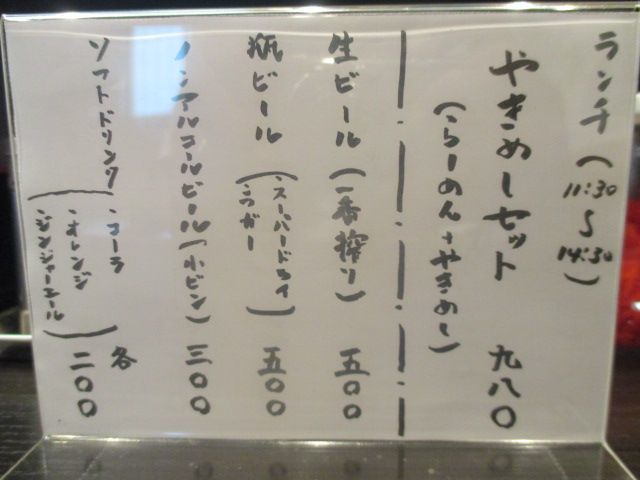 ランチ(11:30〜14:30)
やきめしセット 九八〇
(らーめん+やきめし)
生ビール(一番搾り) 五〇〇
瓶ビール(・スーパードライ 五〇〇
・ラガー)
ノンアルコールビール(小ビン) 三〇〇
ソフトドリンク(・コーラ 各二〇〇
・オレンジ
・ジンジャーエール)